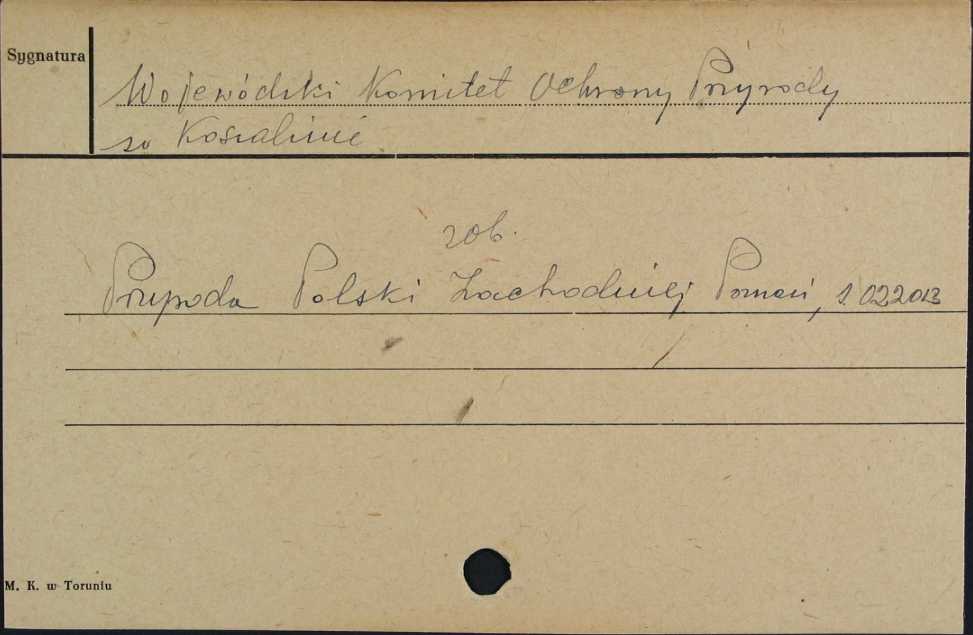 Sygnatura
Wojewódzki Komitet Ochrony Przyrody
w Koszalinie
zob.
Przyroda Polski Zachodniej Poznań, 1 022013
M. K. w Toruniu